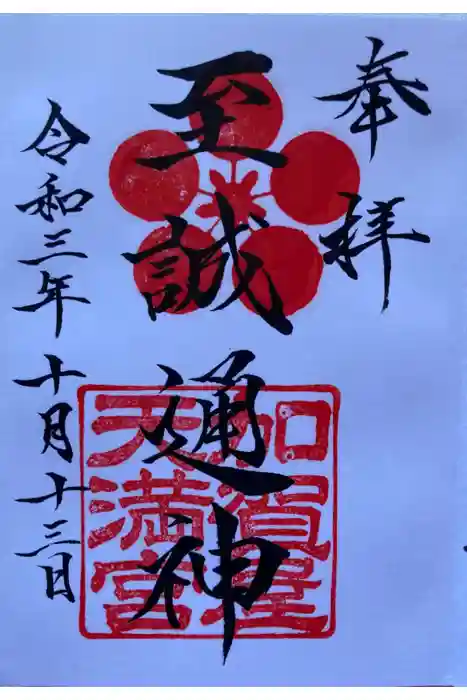 奉拝
至誠通神
加賀星
天満宮
令和三年 十月十三日